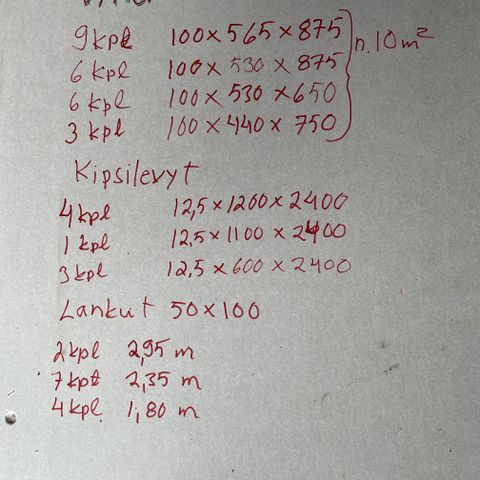 9 kpl 100 x 565 x 875
6 kpl 100 x 530 x 875 n. 10 m²
6 kpl 100 x 530 x 650
3 kpl 100 x 440 x 750
Kipsilevyt
4 kpl 12,5 x 1200 x 2400
1 kpl 12,5 x 1100 x 2400
3 kpl 12,5 x 600 x 2400
Lankut 50 x 100
2 kpl 2,95 m
7 kpl 2,35 m
4 kpl 1,80 m